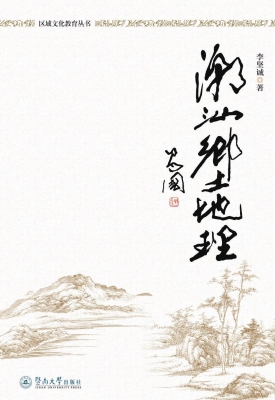 区域文化教育丛书
李坚诚 著
潮汕鄉土地理
暨南大学出版社
JINAN UNIVERSITY PRESS